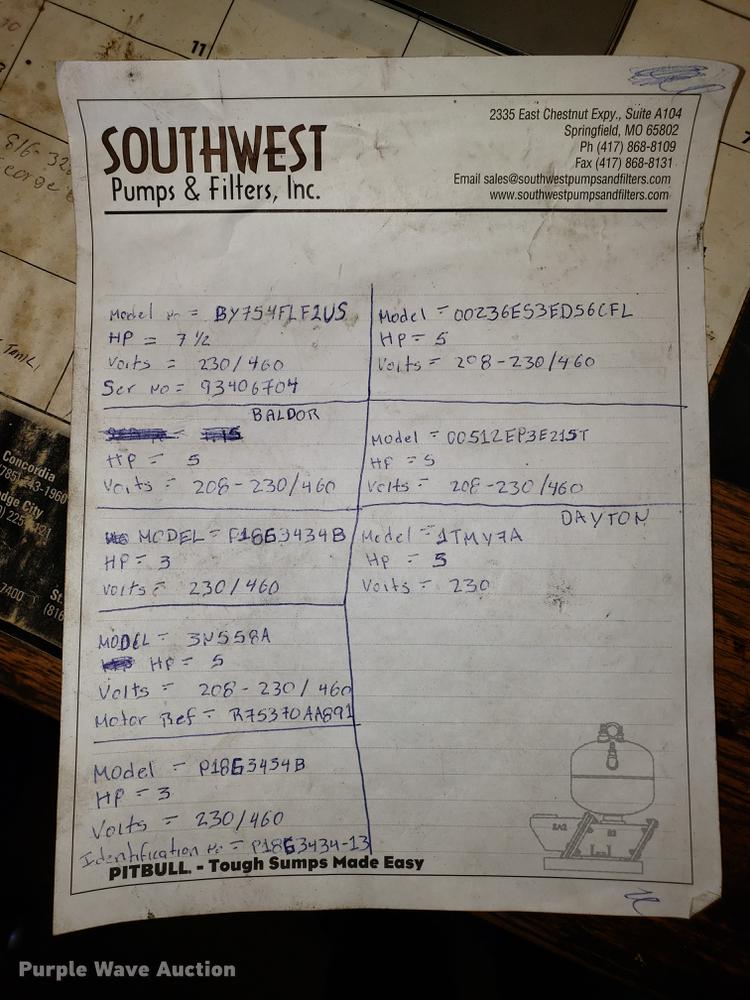 11
816-32
SOUTHWEST
Pumps & Filters, Inc.
2335 East Chestnut Expy., Suite A104
Springfield, MO 65802
Ph (417) 868-8109
Fax (417) 868-8131
Email sales@southwestpumpsandfilters.com
www.southwestpumpsandfilters.com
Model no = BY754FLF2US
HP = 7 1/2
Volts = 230/460
Ser no = 93406704
BALDOR
HP = 5
Volts = 208-230/460
MODEL = P18G3434B
HP = 3
Volts = 230/460
MODEL = 3N558A
HP = 5
Volts = 208-230/460
Motor Ref = R75370AA891
Model = P18G3454B
HP = 3
Volts = 230/460
Identification no = P18G3434-13
Model = 00236ES3ED56CFL
HP = 5
Volts = 208-230/460
Model = 00512EP3E215T
HP = 5
Volts = 208-230/460
DAYTON
Model = 1TMY7A
HP = 5
Volts = 230
PITBULL. - Tough Sumps Made Easy
Concordia
Purple Wave Auction